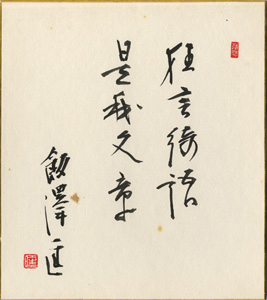 狂言綺語
是我文章
飯澤匡